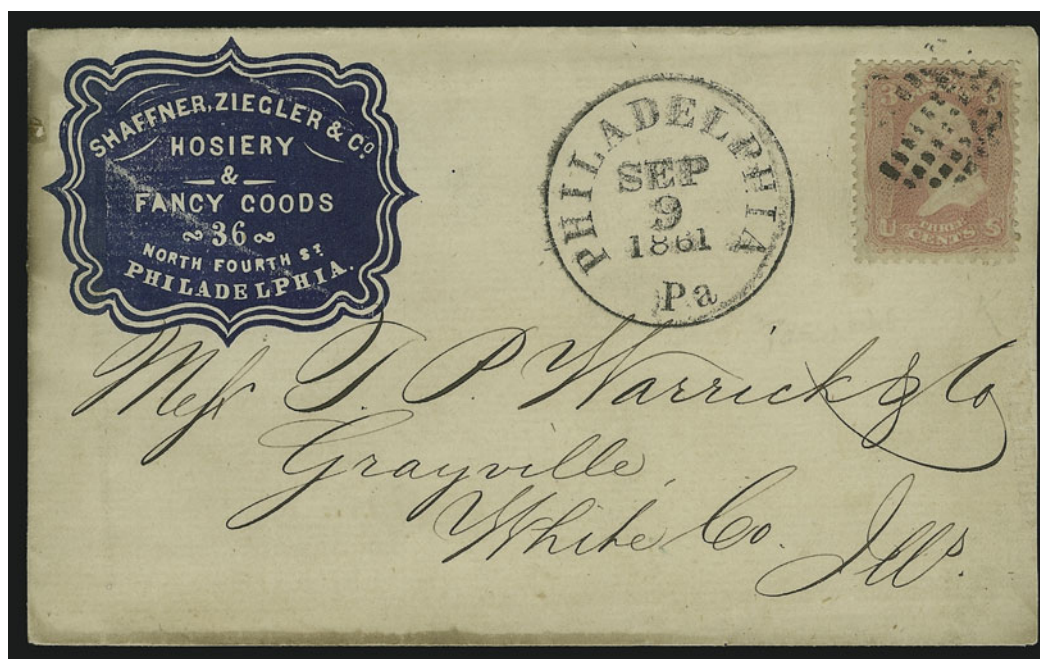 SHAFFNER, ZIEGLER & Co
HOSIERY
&
FANCY GOODS
36
NORTH FOURTH ST
PHILADELPHIA.
PHILADELPHIA
SEP
9
1861
Pa
3
U THREE CENTS S
Mess T. P. Warrick & Co
Grayville,
White Co. Ills.